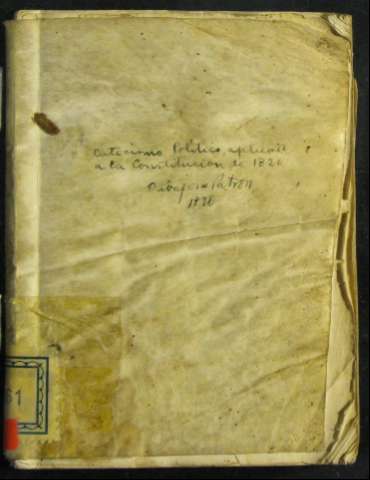 Catecismo Politico, aplicado
a la Constitucion de 1820
Patron
1820
61